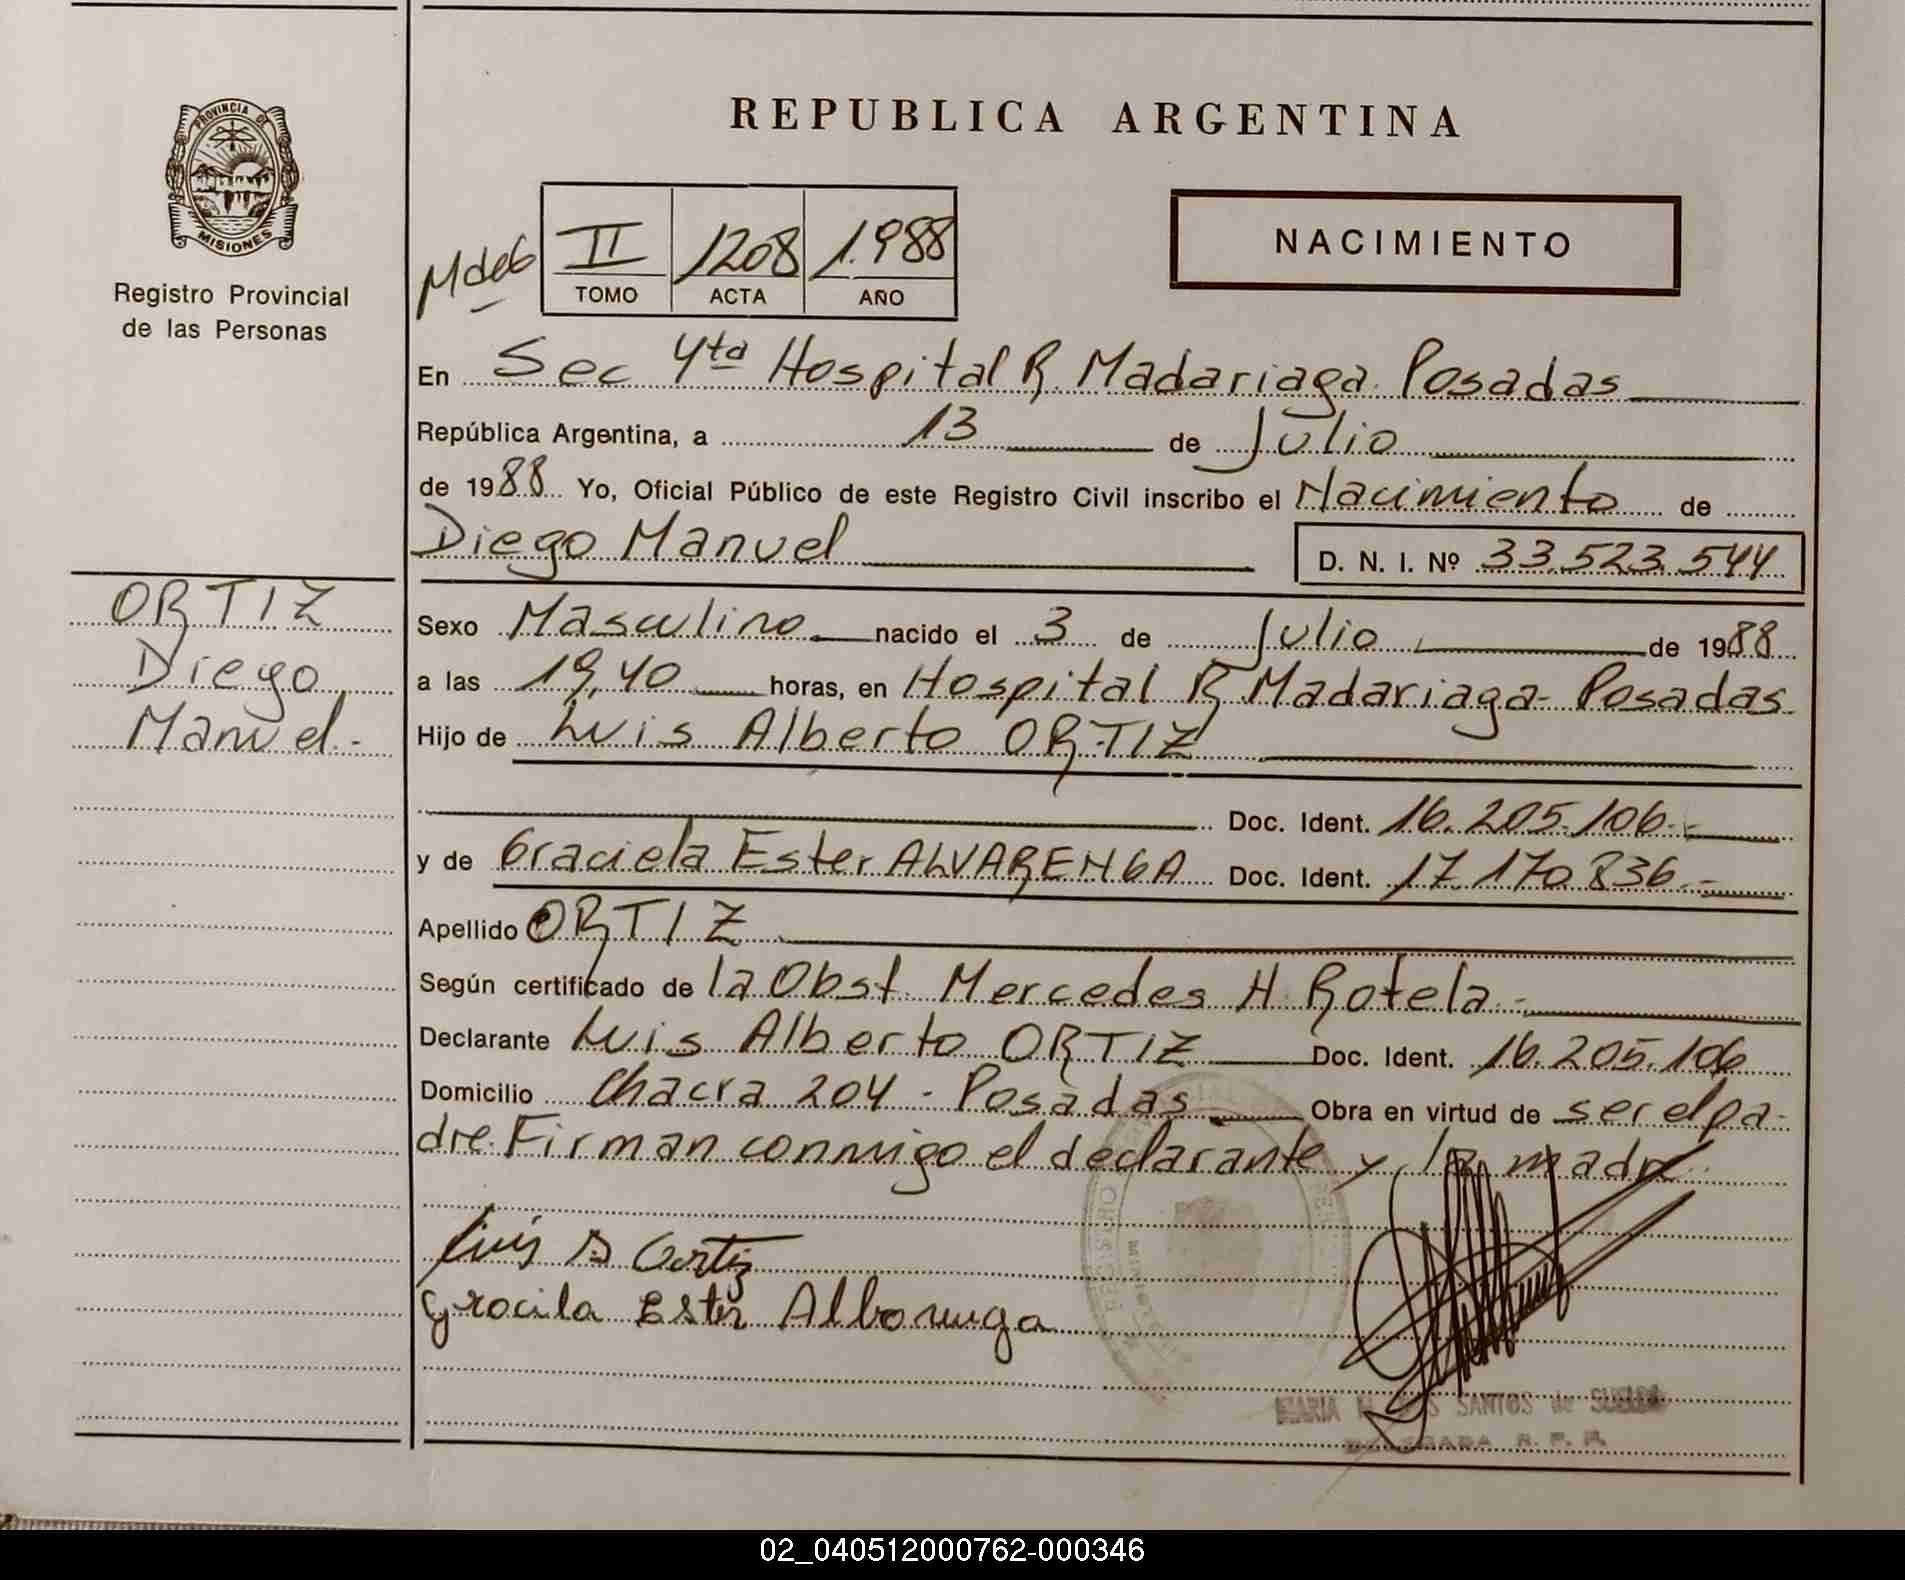 REPUBLICA ARGENTINA
PROVINCIA DE
MISIONES
Registro Provincial
de las Personas
II 1208 1.988
TOMO ACTA AÑO
NACIMIENTO
En Sec 4ta Hospital R. Madariaga. Posadas
República Argentina, a 13 de Julio
de 1988 Yo, Oficial Público de este Registro Civil inscribo el Nacimiento de
Diego Manuel D. N. I. Nº 33.523.544
ORTIZ
Diego
Manuel.-
Sexo Masculino nacido el 3 de Julio de 1988
a las 19,40 horas, en Hospital R Madariaga- Posadas
Hijo de Luis Alberto ORTIZ
Doc. Ident. 16.205.106.-
y de Graciela Ester ALVARENGA Doc. Ident. 17.170.836.-
Apellido ORTIZ
Según certificado de la Obst. Mercedes H. Rotela.-
Declarante Luis Alberto ORTIZ Doc. Ident. 16.205.106
Domicilio Chacra 204 - Posadas Obra en virtud de ser el pa-
dre. Firman conmigo el declarante y la madre.
Luis A Ortiz
Ester
MARIA SANTOS de
DELEGADA R. P. P.
02_040512000762-000346